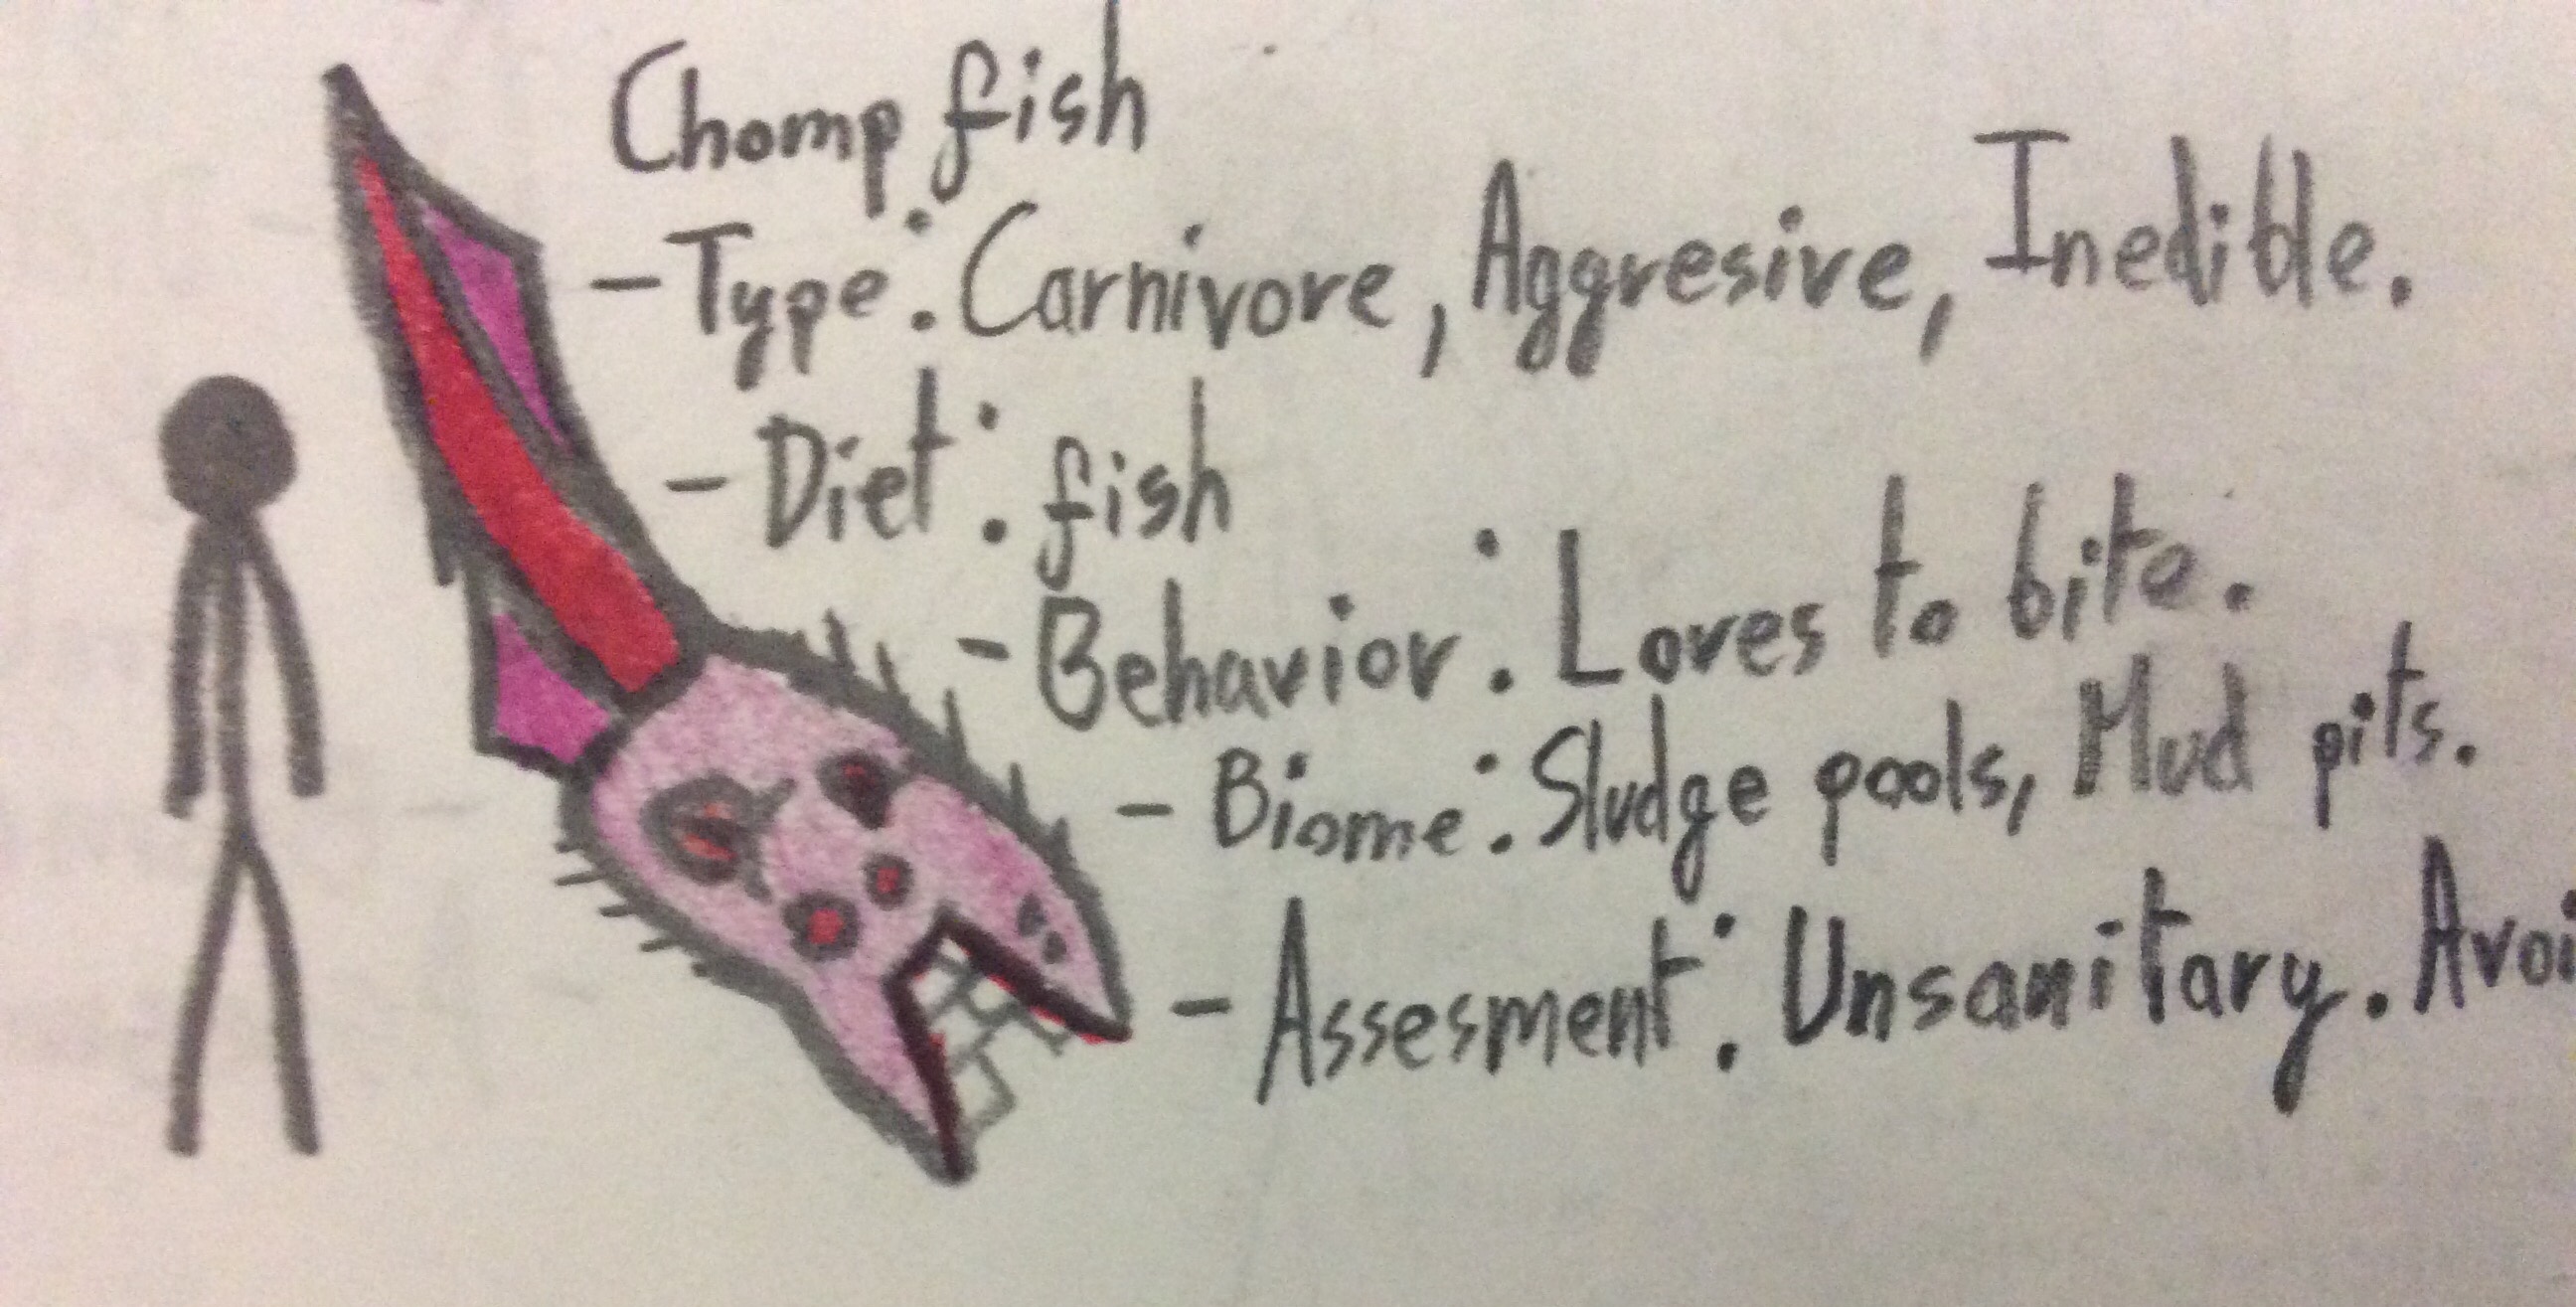 Chomp fish
- Type: Carnivore, Aggresive, Inedible.
- Diet: fish
- Behavior: Loves to bite.
- Biome: Sludge pools, Mud pits.
- Assesment: Unsanitary. Avoi